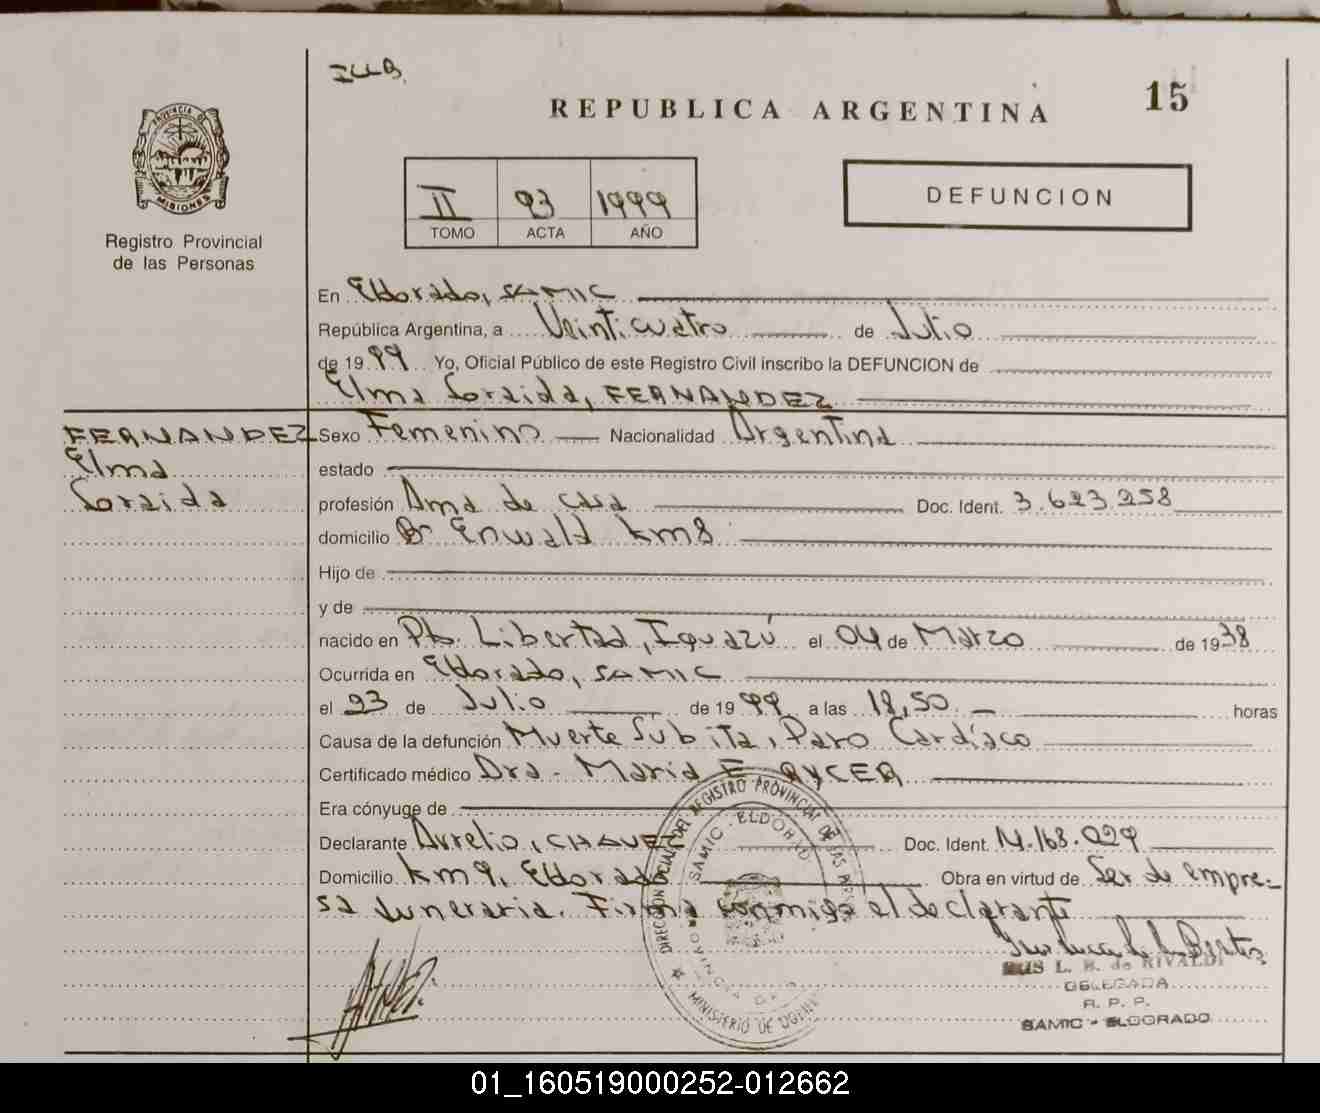 ILLB
REPUBLICA ARGENTINA
15
PROVINCIA DE
MISIONES
Registro Provincial
de las Personas
II 93 1999
TOMO ACTA AÑO
DEFUNCION
En Eldorado, SAMIC
República Argentina, a Veinticuatro de Julio
de 1999 Yo, Oficial Público de este Registro Civil inscribo la DEFUNCION de
Elma Soraida, FERNANDEZ
FERNANDEZ
Elma
Soraida
Sexo Femenino Nacionalidad Argentina
estado
profesión Ama de casa Doc. Ident. 3.623.258
domicilio Bº Enwald km8
Hijo de
y de
nacido en Pto. Libertad, Iguazú el 04 de Marzo de 1938
Ocurrida en Eldorado, SAMIC
el 23 de Julio de 1999 a las 18,50 horas
Causa de la defunción Muerte Súbita, Paro Cardíaco
Certificado médico Dra. Maria E.
Era cónyuge de
Declarante Aurelio, CHAVEZ Doc. Ident. M.168.029
Domicilio km9, Eldorado Obra en virtud de Ser de empre=
sa funeraria. Firma conmigo el declarante
DIRECCION DEL REGISTRO PROVINCIAL DE LAS PER
SAMIC - ELDORADO
MINISTERIO DE GOBIERNO
L. B. de RIVALDI
DELEGADA
R. P. P.
SAMIC - ELDORADO
01_160519000252-012662